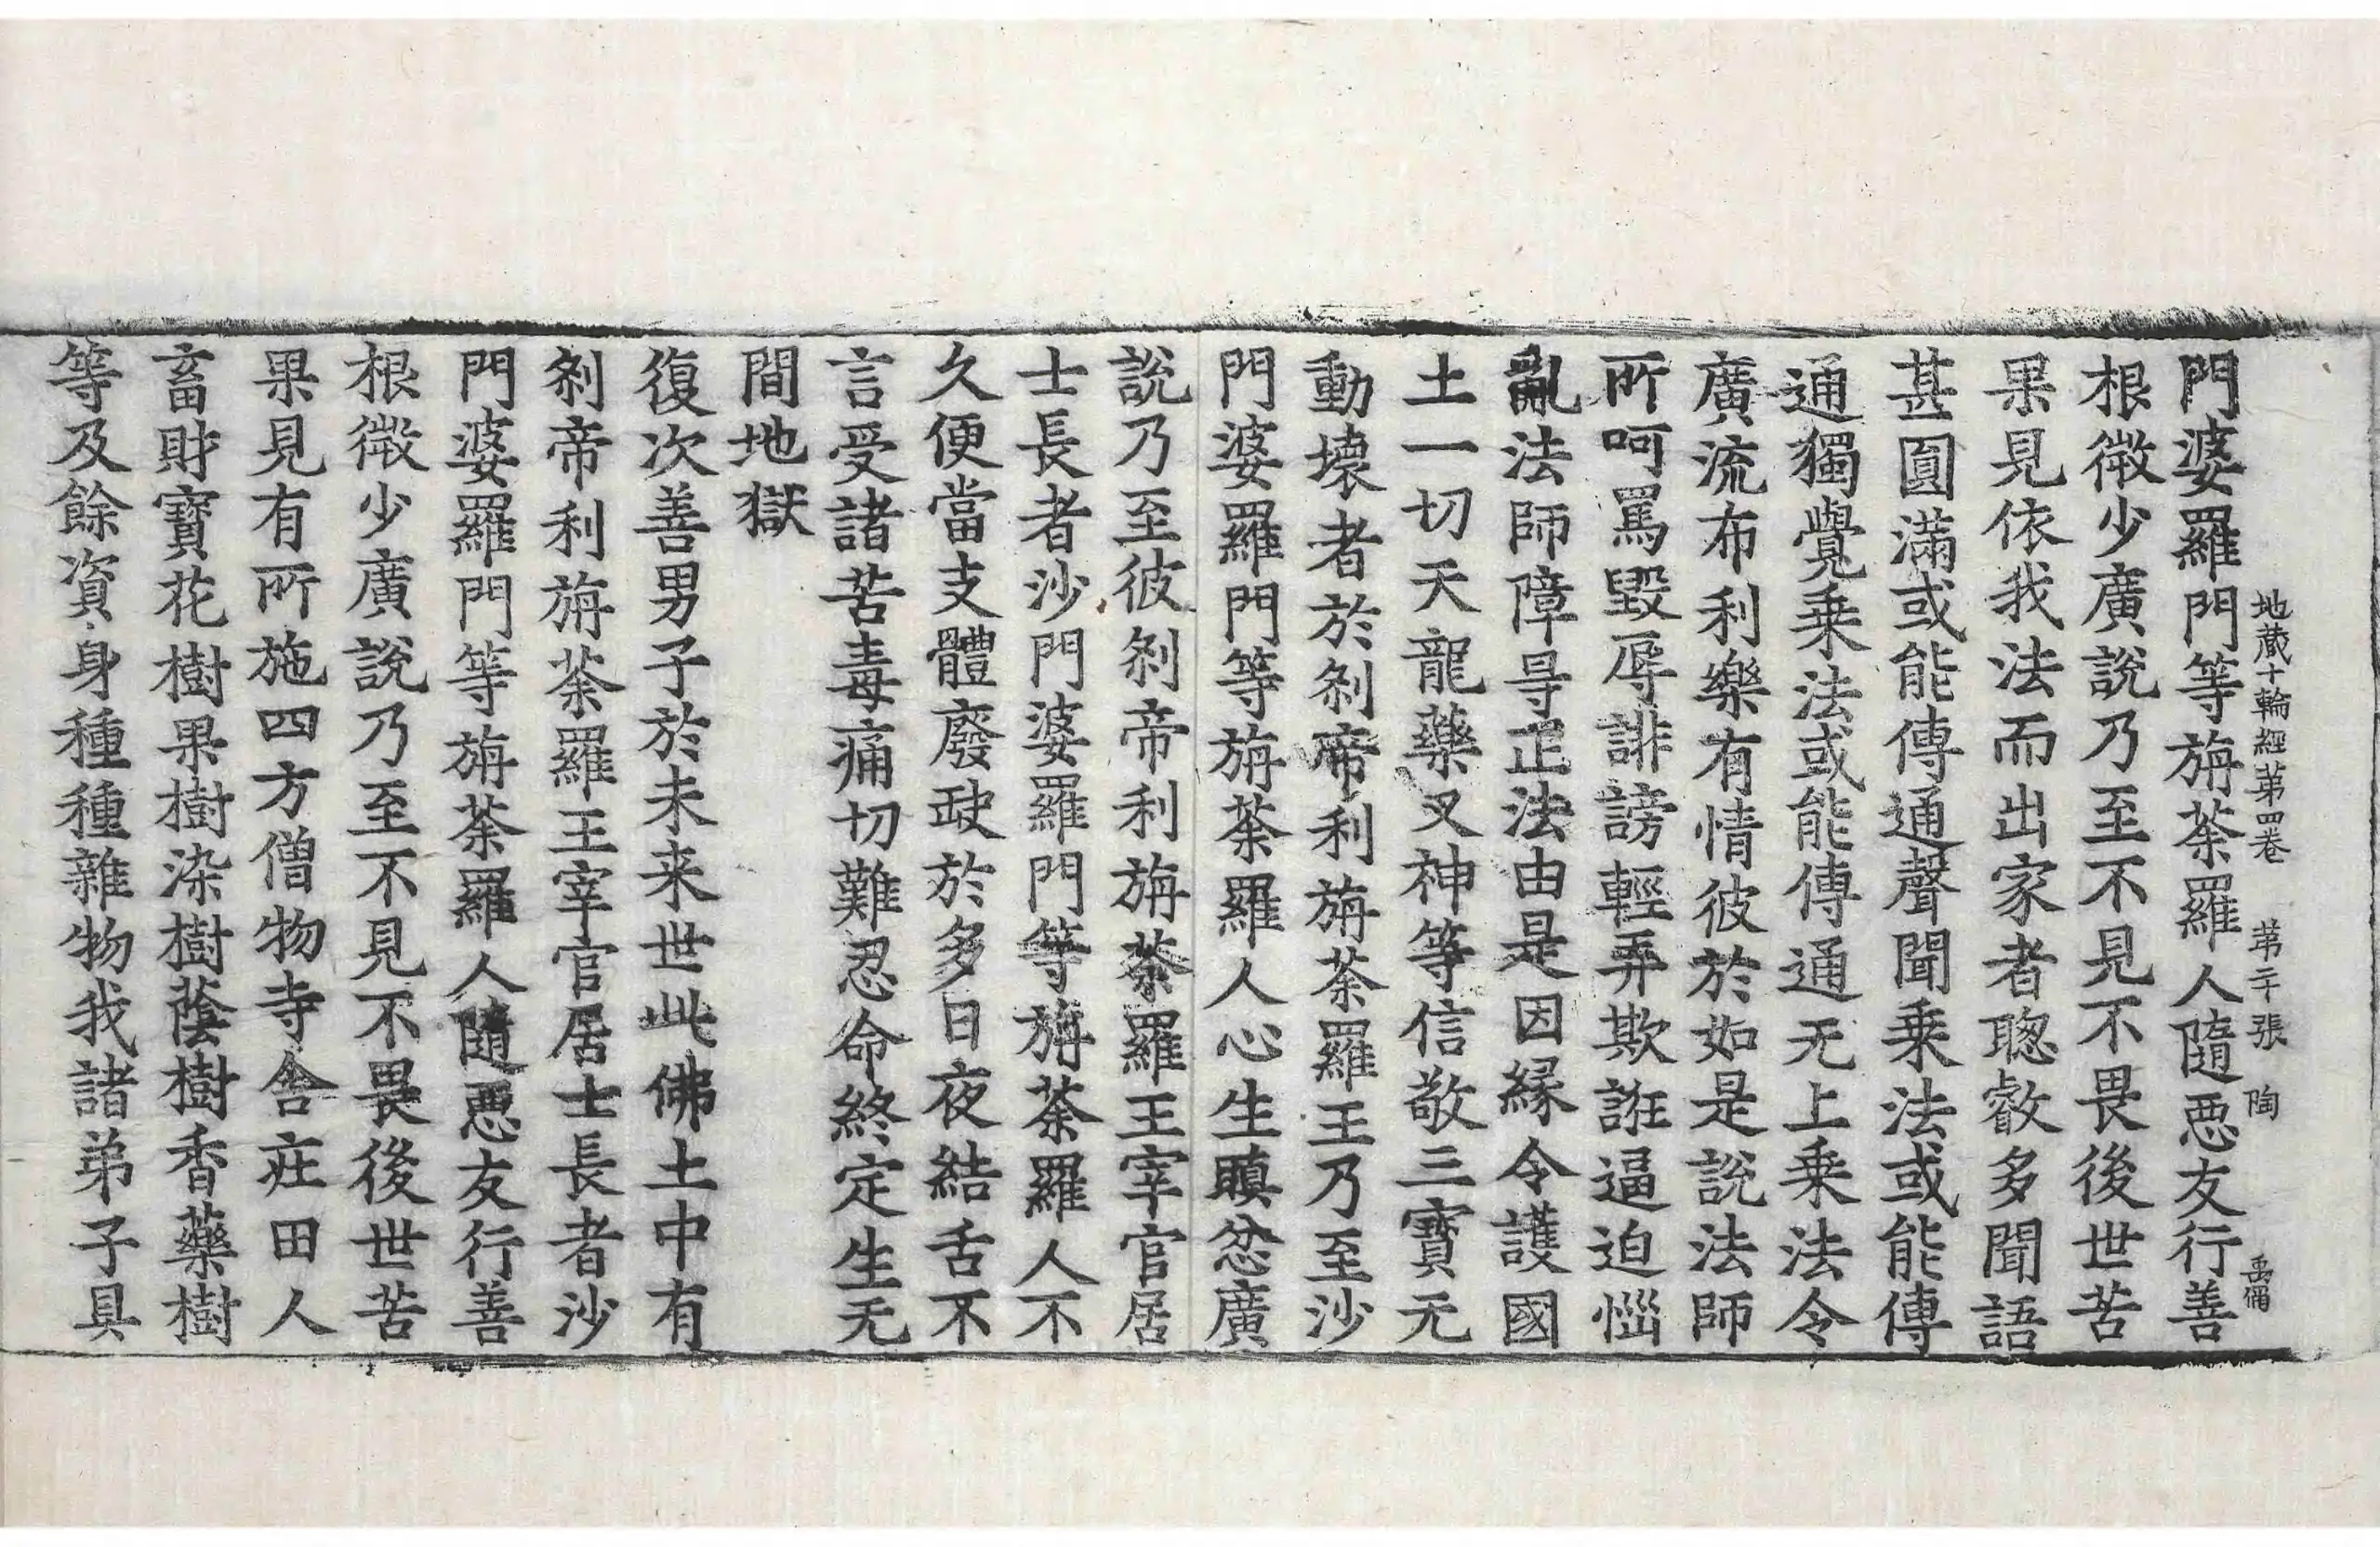 地藏十輪經苐四卷 苐二十張 陶 禹俻
門婆羅門等旃荼羅人隨惡友行善
根微少廣說乃至不見不畏後世苦
果見依我法而出家者聰叡多聞語
甚圓滿或能傳通聲聞乗法或能傳
通獨覺乗法或能傳通无上乗法令
廣流布利樂有情彼於如是說法師
所呵罵毀辱誹謗輕弄欺誑逼迫惱
亂法師障㝵正法由是因縁令護國
土一切天龍藥叉神等信敬三寳无
動壞者於刹帝利旃荼羅王乃至沙
門婆羅門等旃荼羅人心生瞋忿廣
說乃至彼刹帝利旃荼羅王宰官居
士長者沙門婆羅門等旃荼羅人不
久便當支體廢𡙇於多日夜結舌不
言受諸苦毒痛切難忍命終定生无
間地獄
復次善男子於未来世此佛土中有
刹帝利旃荼羅王宰官居士長者沙
門婆羅門等旃荼羅人隨惡友行善
根微少廣說乃至不見不畏後世苦
果見有所施四方僧物寺舎庄田人
畜財寳花樹果樹染樹蔭樹香藥樹
等及餘資身種種雜物我諸弟子具